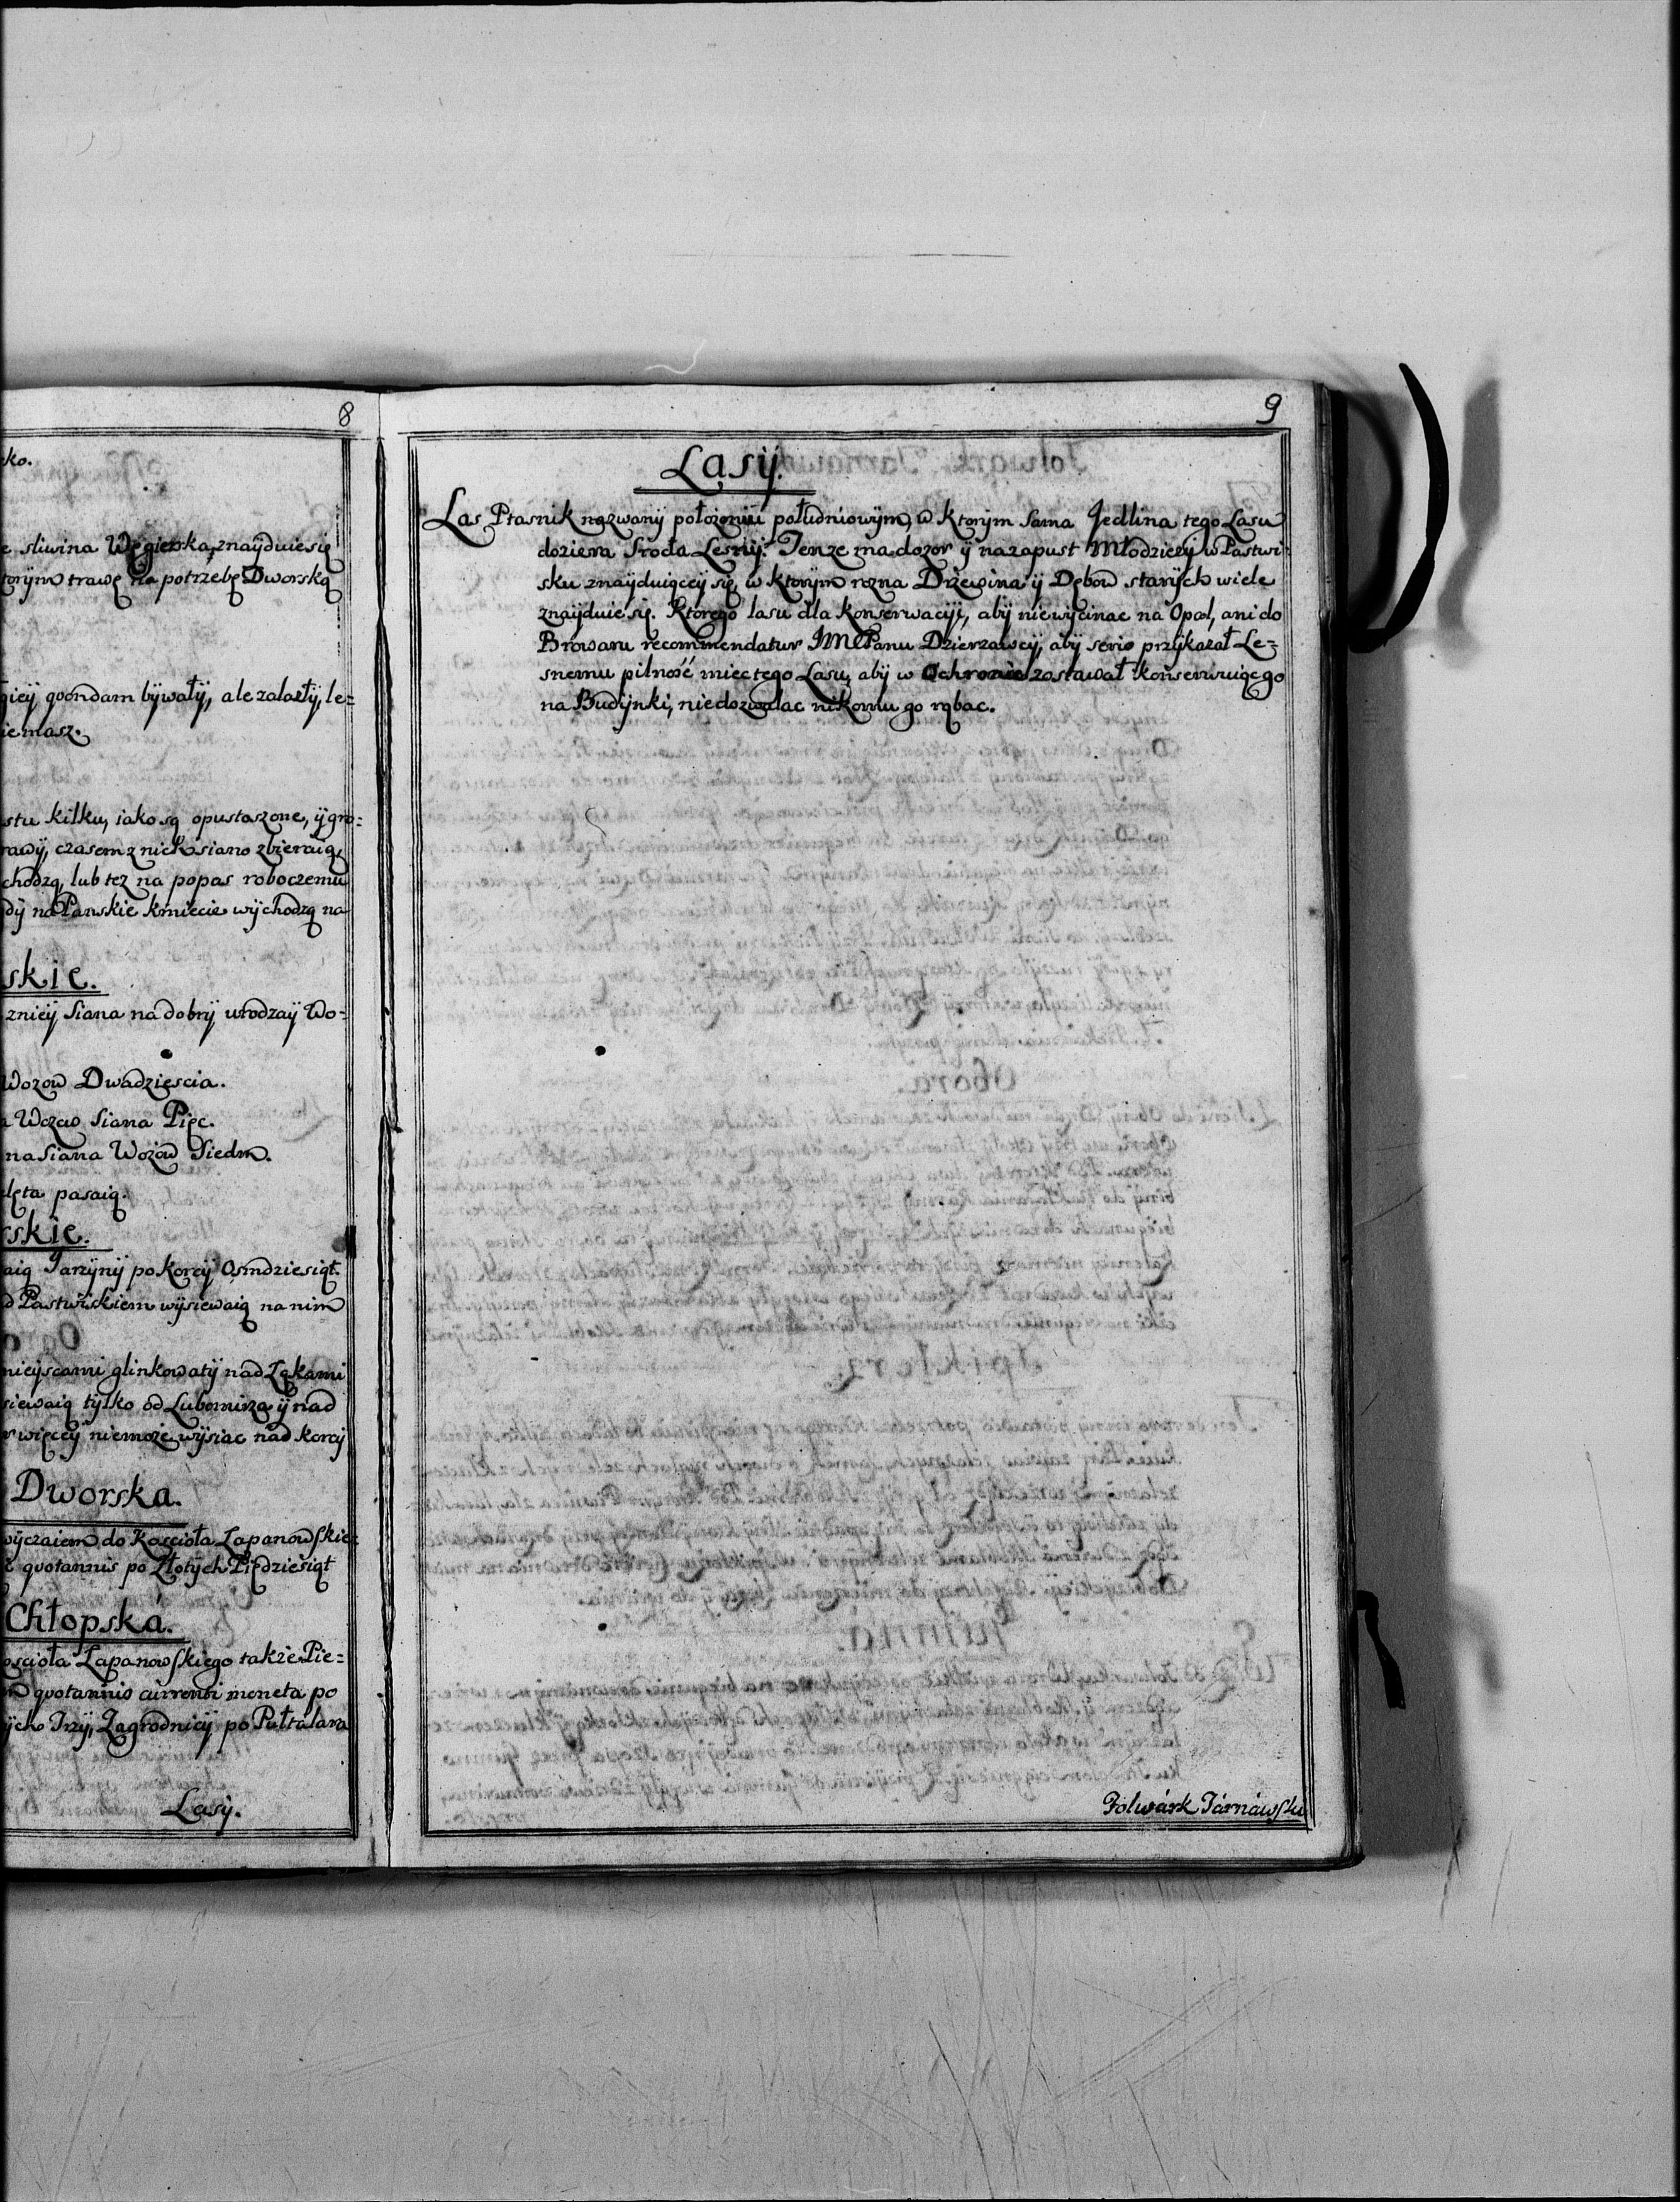 8
cko.
e sliwina Węgierska, znaÿduie się
torÿm trawę na potrzebę Dworską
gieÿ qvondam bÿwałÿ, ale zalazłÿ, le=
ie masz.
stu kilku, iako są opustoszone, ÿ gro=
rawÿ, czasem z nich siano zbieraią,
chodzą, lub tez na popas roboczemu
dÿ na Panskie kmiecie wÿchodzą na
skie.
znieÿ Siana na dobrÿ urodzaÿ Wo=
Wozow Dwadziescia.
a Wozow Siana Pięc.
na Siana Wozow Siedm.
lęta pasaią.
rskie.
aią Jarzÿnÿ po Korcÿ Osmdziesiąt.
d Pastwiskiem wÿsiewaią na nim
mieÿscami glinkowatÿ nad Łąkami
siewaią tÿlko od Lubomirza ÿ nad
więceÿ niemoże wÿsiac nad korcÿ
Dworska.
wÿczaiem do Kosciołа Łapanowskie=
qvotannis po Złotÿch Piędziesiąt
Chłopská.
oscioła Łapanowskiego także Pie=
qvotannis currenti moneta po
ÿch Trzÿ, Zagrodnicÿ po Pułtalara
Lasÿ.
9
Lasÿ.
Las Ptasnik nazwanÿ położeniu południowÿm, w ktorÿm sama Jedlina tego Lasu
doziera Sroda Lesnÿ. Tenze ma dozor ÿ na zapust Młodzieży w Pastwi=
sku znaÿduiąceÿ się, w ktorÿm rozna Drzewina ÿ Dębow starÿch wiele
znaÿduie się. Ktorego lasu dla konserwacÿi, abÿ niewÿcinac na Opał, ani do
Browaru recommendatur JMC Panu Dzierzawcÿ, abÿ serio przÿkazał Le=
snemu pilność miec tego Lasu, abÿ w Ochronie zostawał konserwuiąc go
na Budÿnki, niedozwalac nikomu go rąbac.
Folwárk Tárnáwski